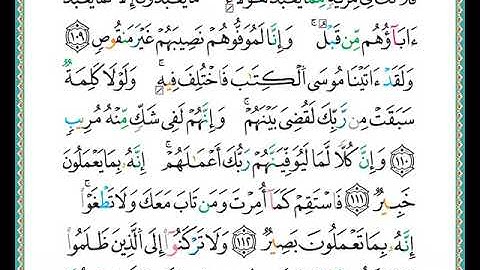 فَلَا تَكُ فِى مِرْيَةٍ مِّمَّا يَعْبُدُ هَٰٓؤُلَآءِ ۚ مَا يَعْبُدُونَ إِلَّا كَمَا يَعْبُدُ
ءَابَآؤُهُم مِّن قَبْلُ ۚ وَإِنَّا لَمُوَفُّوهُمْ نَصِيبَهُمْ غَيْرَ مَنقُوصٍ ١٠٩
وَلَقَدْ ءَاتَيْنَا مُوسَى ٱلْكِتَٰبَ فَٱخْتُلِفَ فِيهِ ۚ وَلَوْلَا كَلِمَةٌ
سَبَقَتْ مِن رَّبِّكَ لَقُضِىَ بَيْنَهُمْ ۚ وَإِنَّهُمْ لَفِى شَكٍّ مِّنْهُ مُرِيبٍ
١١٠ وَإِنَّ كُلًّا لَّمَّا لَيُوَفِّيَنَّهُمْ رَبُّكَ أَعْمَٰلَهُمْ ۚ إِنَّهُۥ بِمَا يَعْمَلُونَ
خَبِيرٌ ١١١ فَٱسْتَقِمْ كَمَآ أُمِرْتَ وَمَن تَابَ مَعَكَ وَلَا تَطْغَوْا۟ ۚ
إِنَّهُۥ بِمَا تَعْمَلُونَ بَصِيرٌ ١١٢ وَلَا تَرْكَنُوٓا۟ إِلَى ٱلَّذِينَ ظَلَمُوا۟